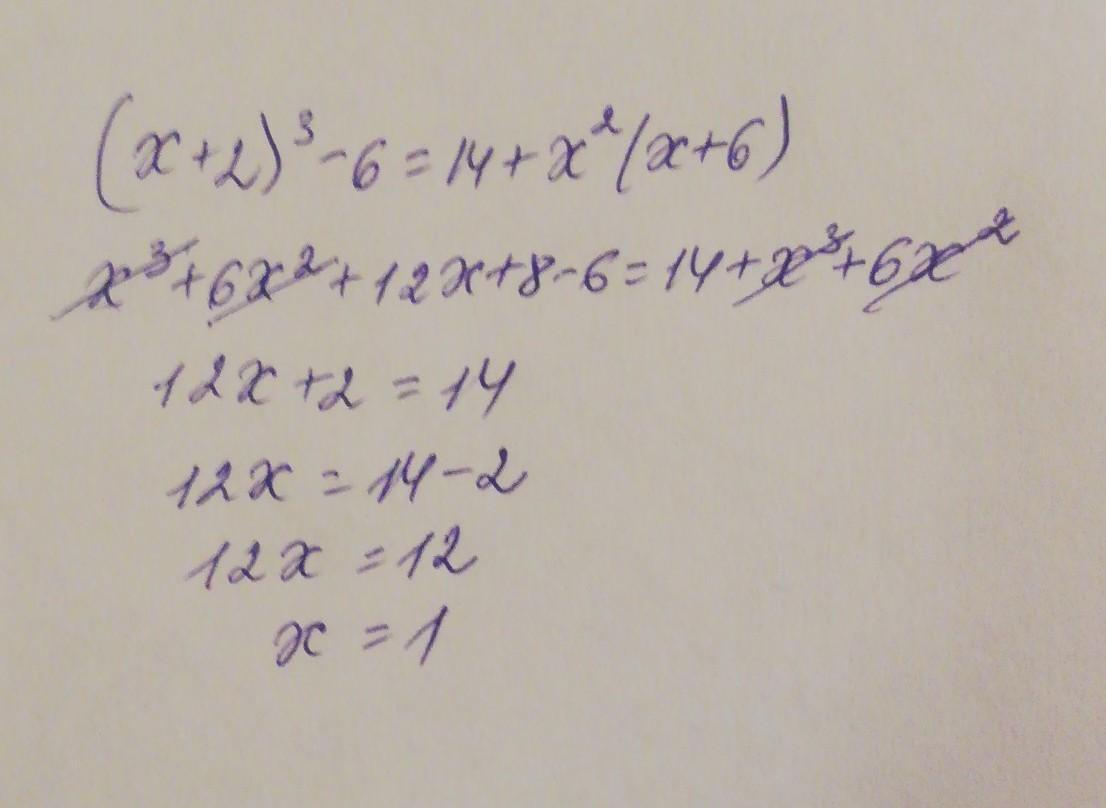 (x+2)³-6=14+x²(x+6)
x³+6x²+12x+8-6=14+x³+6x²
12x+2=14
12x=14-2
12x=12
x=1